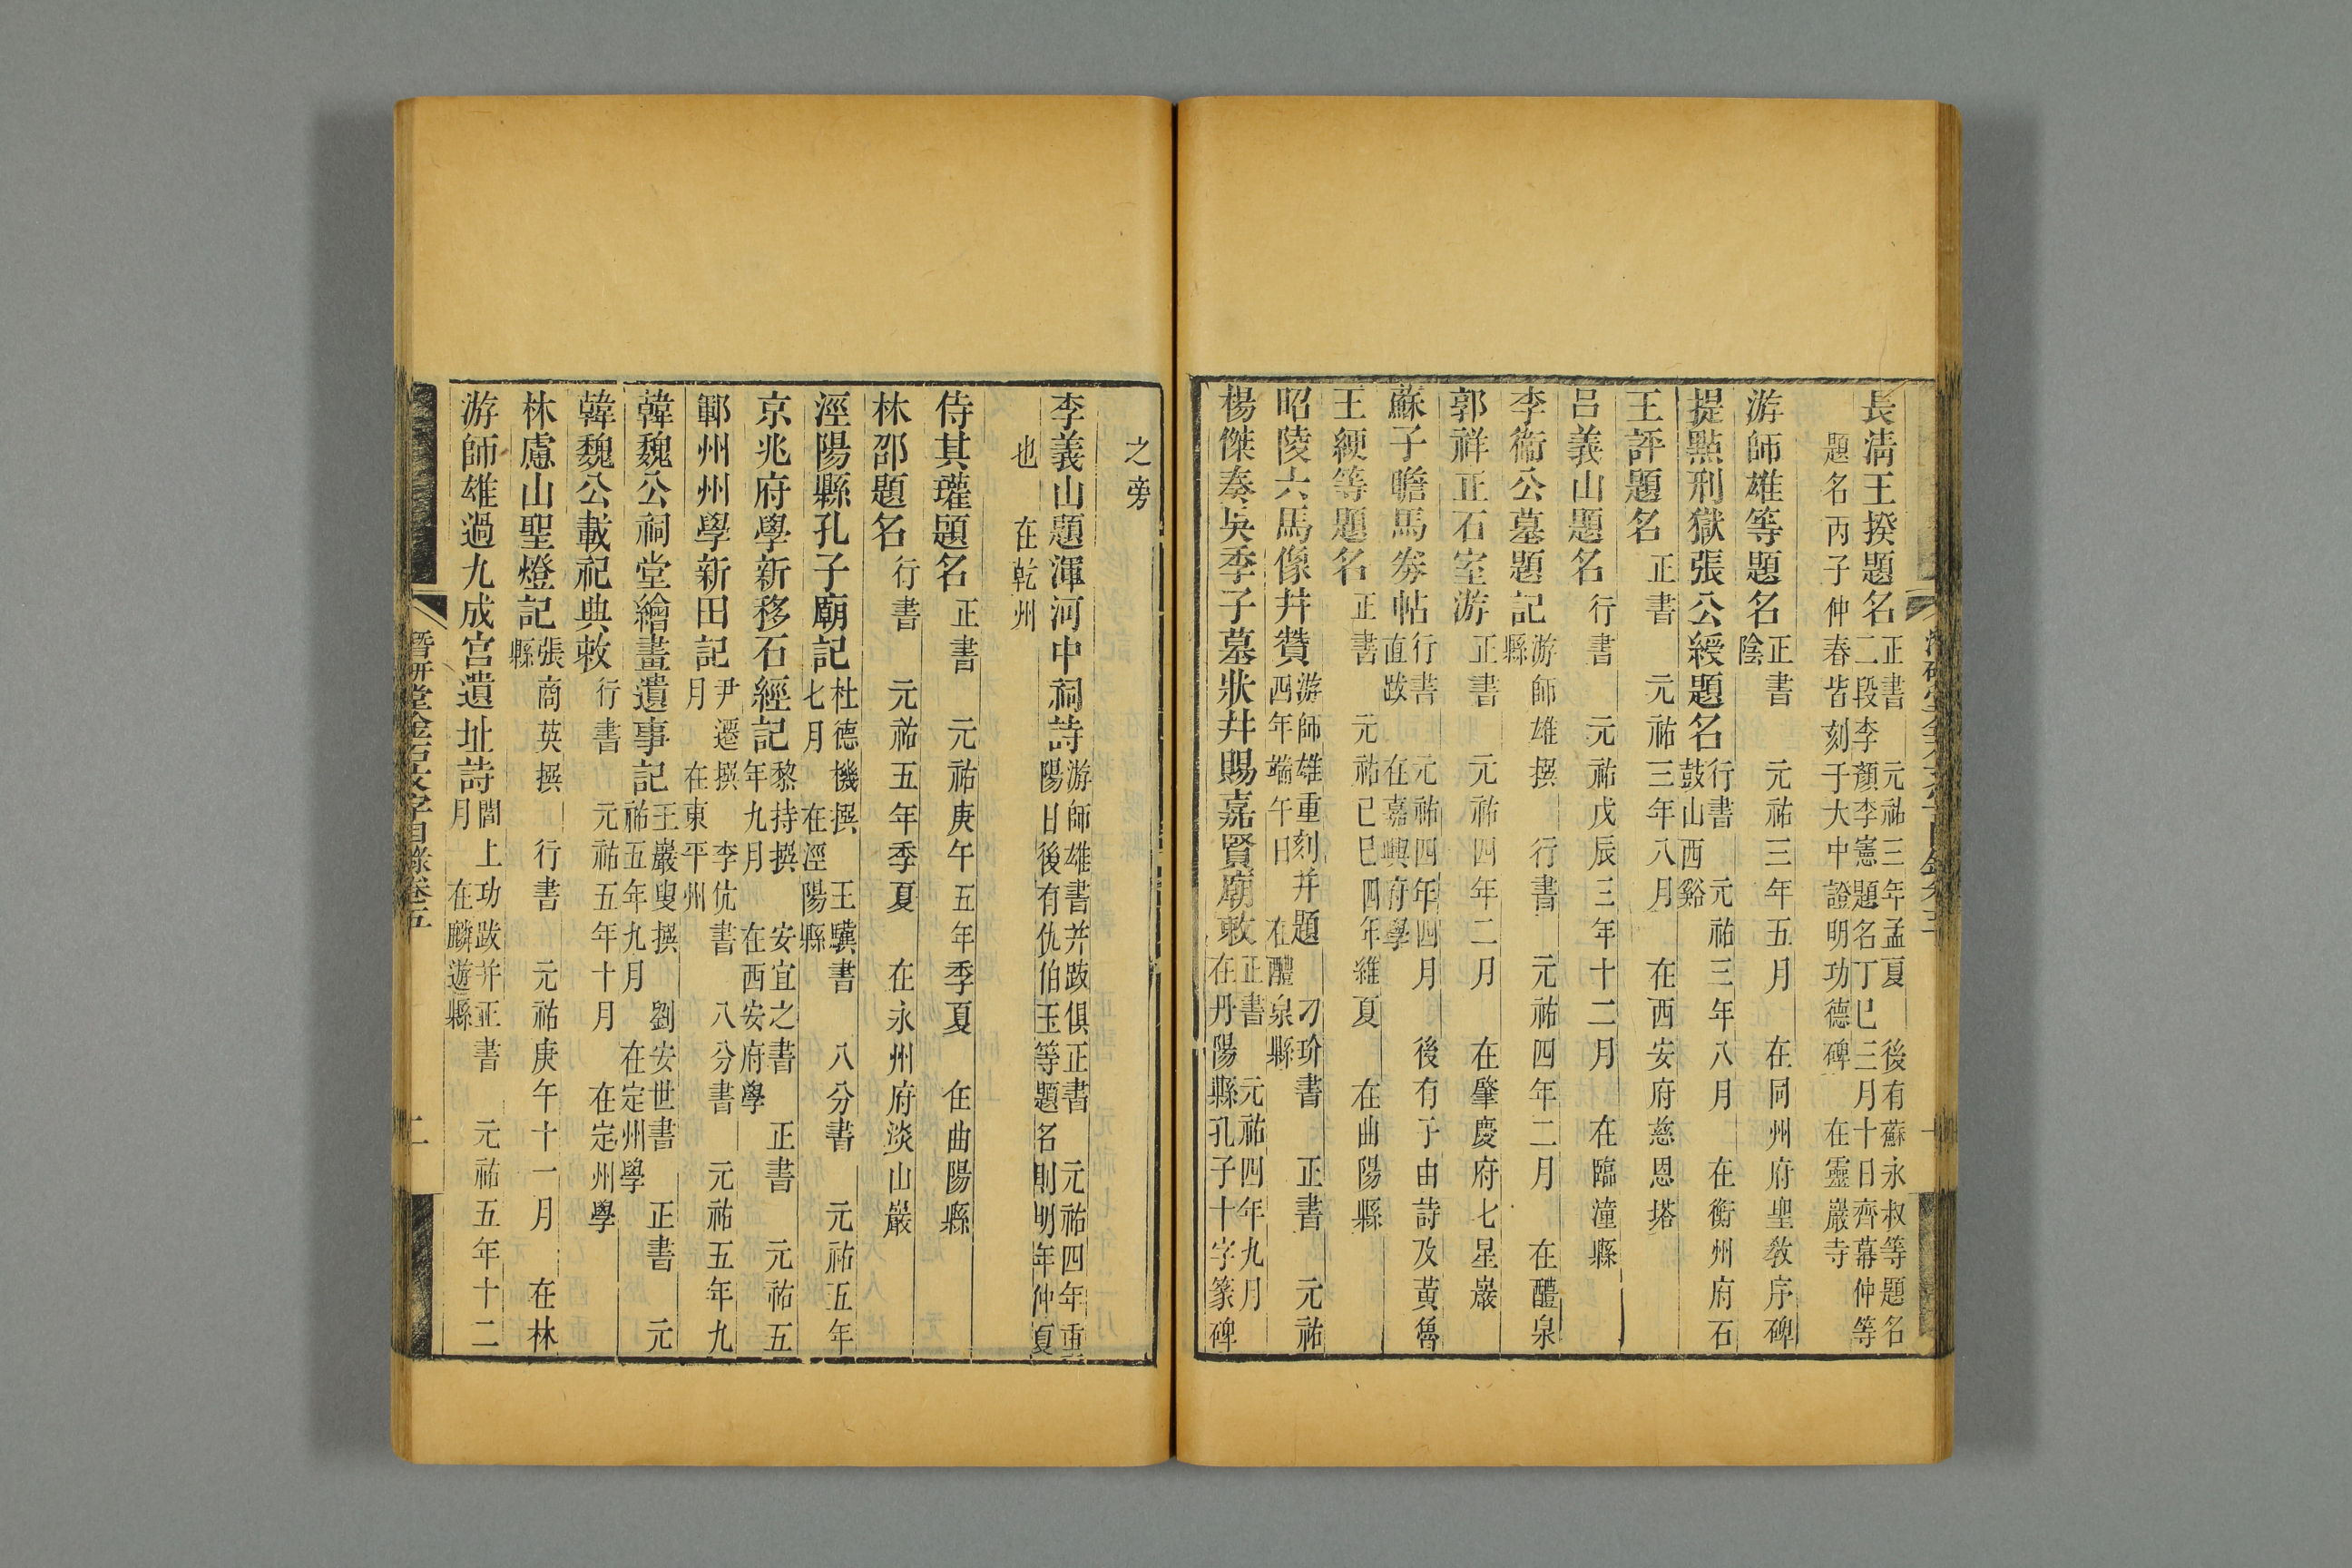 長清王揆題名 正書 元祐三年孟夏 後有蘇永叔等題名
二段李顏李憲題名丁巳三月十日齊幕仲等
題名丙子仲春皆刻于大中證明功德碑 在靈巖寺
游師雄等題名 正書 元祐三年五月 在同州府聖敎序碑
陰
提點刑獄張公綬題名 行書 元祐三年八月 在衡州府石
鼓山西谿
王評題名 正書 元祐三年八月 在西安府慈恩塔
呂義山題名 行書 元祐戊辰三年十二月 在臨潼縣
李衞公墓題記 游師雄撰 行書 元祐四年二月 在醴泉
縣
郭祥正石室游 正書 元祐四年二月 在肇慶府七星巖
蘇子瞻馬劵帖 行書 元祐四年四月 後有子由詩及黃魯
直跋 在嘉興府學
王綆等題名 正書 元祐己巳四年維夏 在曲陽縣
昭陵六馬像幷贊 游師雄重刻幷題 刁玠書 正書 元祐
四年端午日 在醴泉縣
楊傑奏吳季子墓狀幷賜嘉賢廟敕 正書 元祐四年九月
在丹陽縣孔子十字篆碑
之旁
李義山題渾河中祠詩 游師雄書幷跋俱正書 元祐四年重
陽日後有仇伯玉等題名則明年仲夏
也 在乾州
侍其瓘題名 正書 元祐庚午五年季夏 在曲陽縣
林邵題名 行書 元祐五年季夏 在永州府淡山巖
涇陽縣孔子廟記 杜德機撰 王驥書 八分書 元祐五年
七月 在涇陽縣
京兆府學新移石經記 黎持撰 安宜之書 正書 元祐五
年九月 在西安府學
鄆州州學新田記 尹遷撰 李伉書 八分書 元祐五年九
月 在東平州
韓魏公祠堂繪畫遺事記 王巖叟撰 劉安世書 正書 元
祐五年九月 在定州學
韓魏公載祀典敕 行書 元祐五年十月 在定州學
林慮山聖燈記 張商英撰 行書 元祐庚午十一月 在林
縣
游師雄過九成宮遺址詩 閻上功跋幷正書 元祐五年十二
月 在麟遊縣
潛研堂金石文字目錄卷五 二